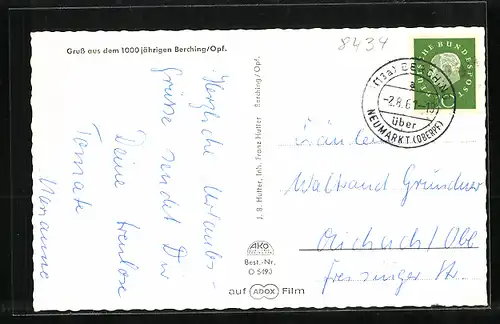 Gruß aus dem 1000 jährigen Berching/Opf.
8434
Herzliche Urlaubs-
Grüsse sendet Dir
Deine treulose
Tomate
Marianne
J. B. Hutter, Inh. Franz Hutter Berching/Opf.
AKO
Best.-Nr.
O 5493
auf ADOX Film
(13a) BERCHING
a
-2.8.61-18
über
NEUMARKT (OBERPF)
DEUTSCHE BUNDESPOST
10
Fräulein
Waltraud Gründner
Aichach/Obb
Freisinger Str.